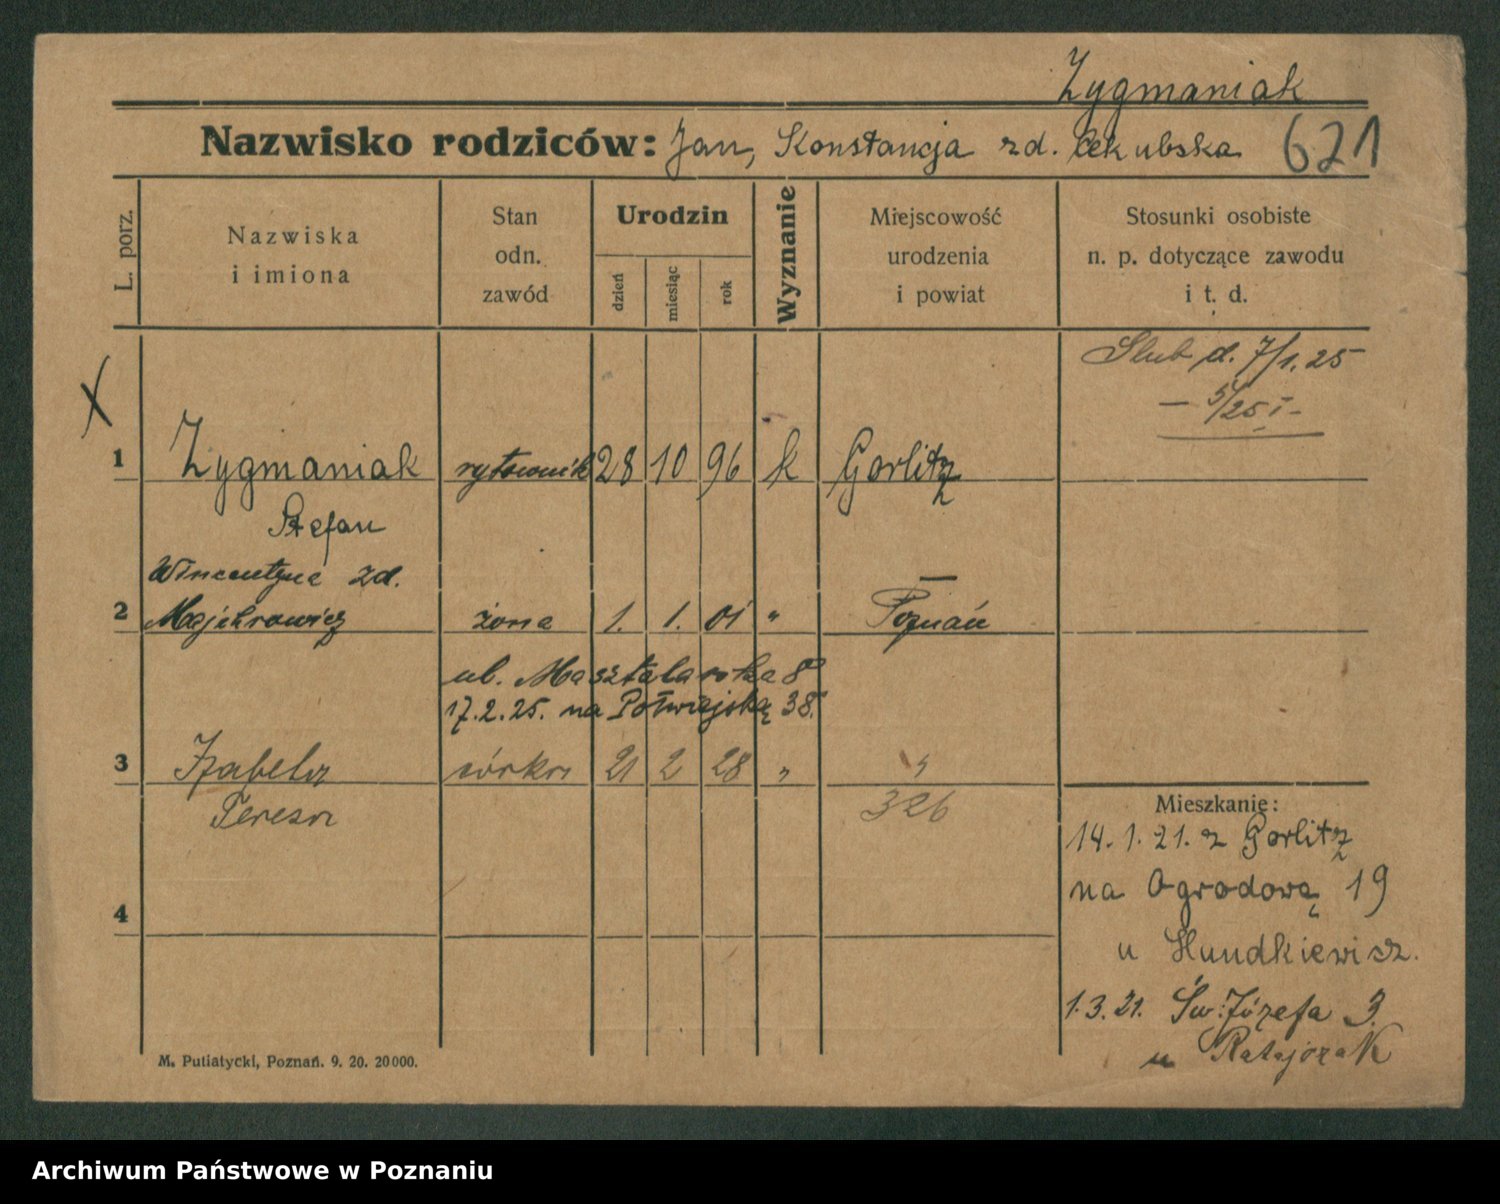 Zygmaniak
Nazwisko rodziców: Jan, Konstancja zd. 621
L. porz.
Nazwiska
i imiona
Stan
odn.
zawód
Urodzin
dzień
miesiąc
rok
Wyznanie
Miejscowość
urodzenia
i powiat
Stosunki osobiste
n. p. dotyczące zawodu
i t. d.
Ślub d. 7/1. 25
— 5/25 I -
X
1 Zygmaniak rytownik 28 10 96 k Gorlitz
Stefan
Wincentyna zd.
2 Majchrowicz żona 1. 1. 01 " Poznań
ul. Masztalarska 8
17.2.25. na Półwiejską 38.
3 Izabela córka 21 2 28 " "
Teresa 326
4
Mieszkanie:
14. 1. 21. z Gorlitz
na Ogrodową 19
u
1.3.21. Św. Józefa 3.
u Ratajczak
M. Putiatycki, Poznań. 9. 20. 20000.
Archiwum Państwowe w Poznaniu